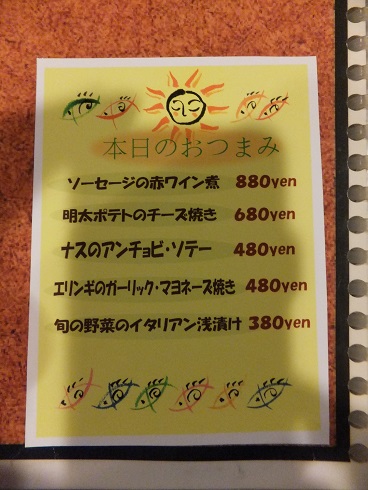 本日のおつまみ
ソーセージの赤ワイン煮 880yen
明太ポテトのチーズ焼き 680yen
ナスのアンチョビ・ソテー 480yen
エリンギのガーリック・マヨネーズ焼き 480yen
旬の野菜のイタリアン浅漬け 380yen